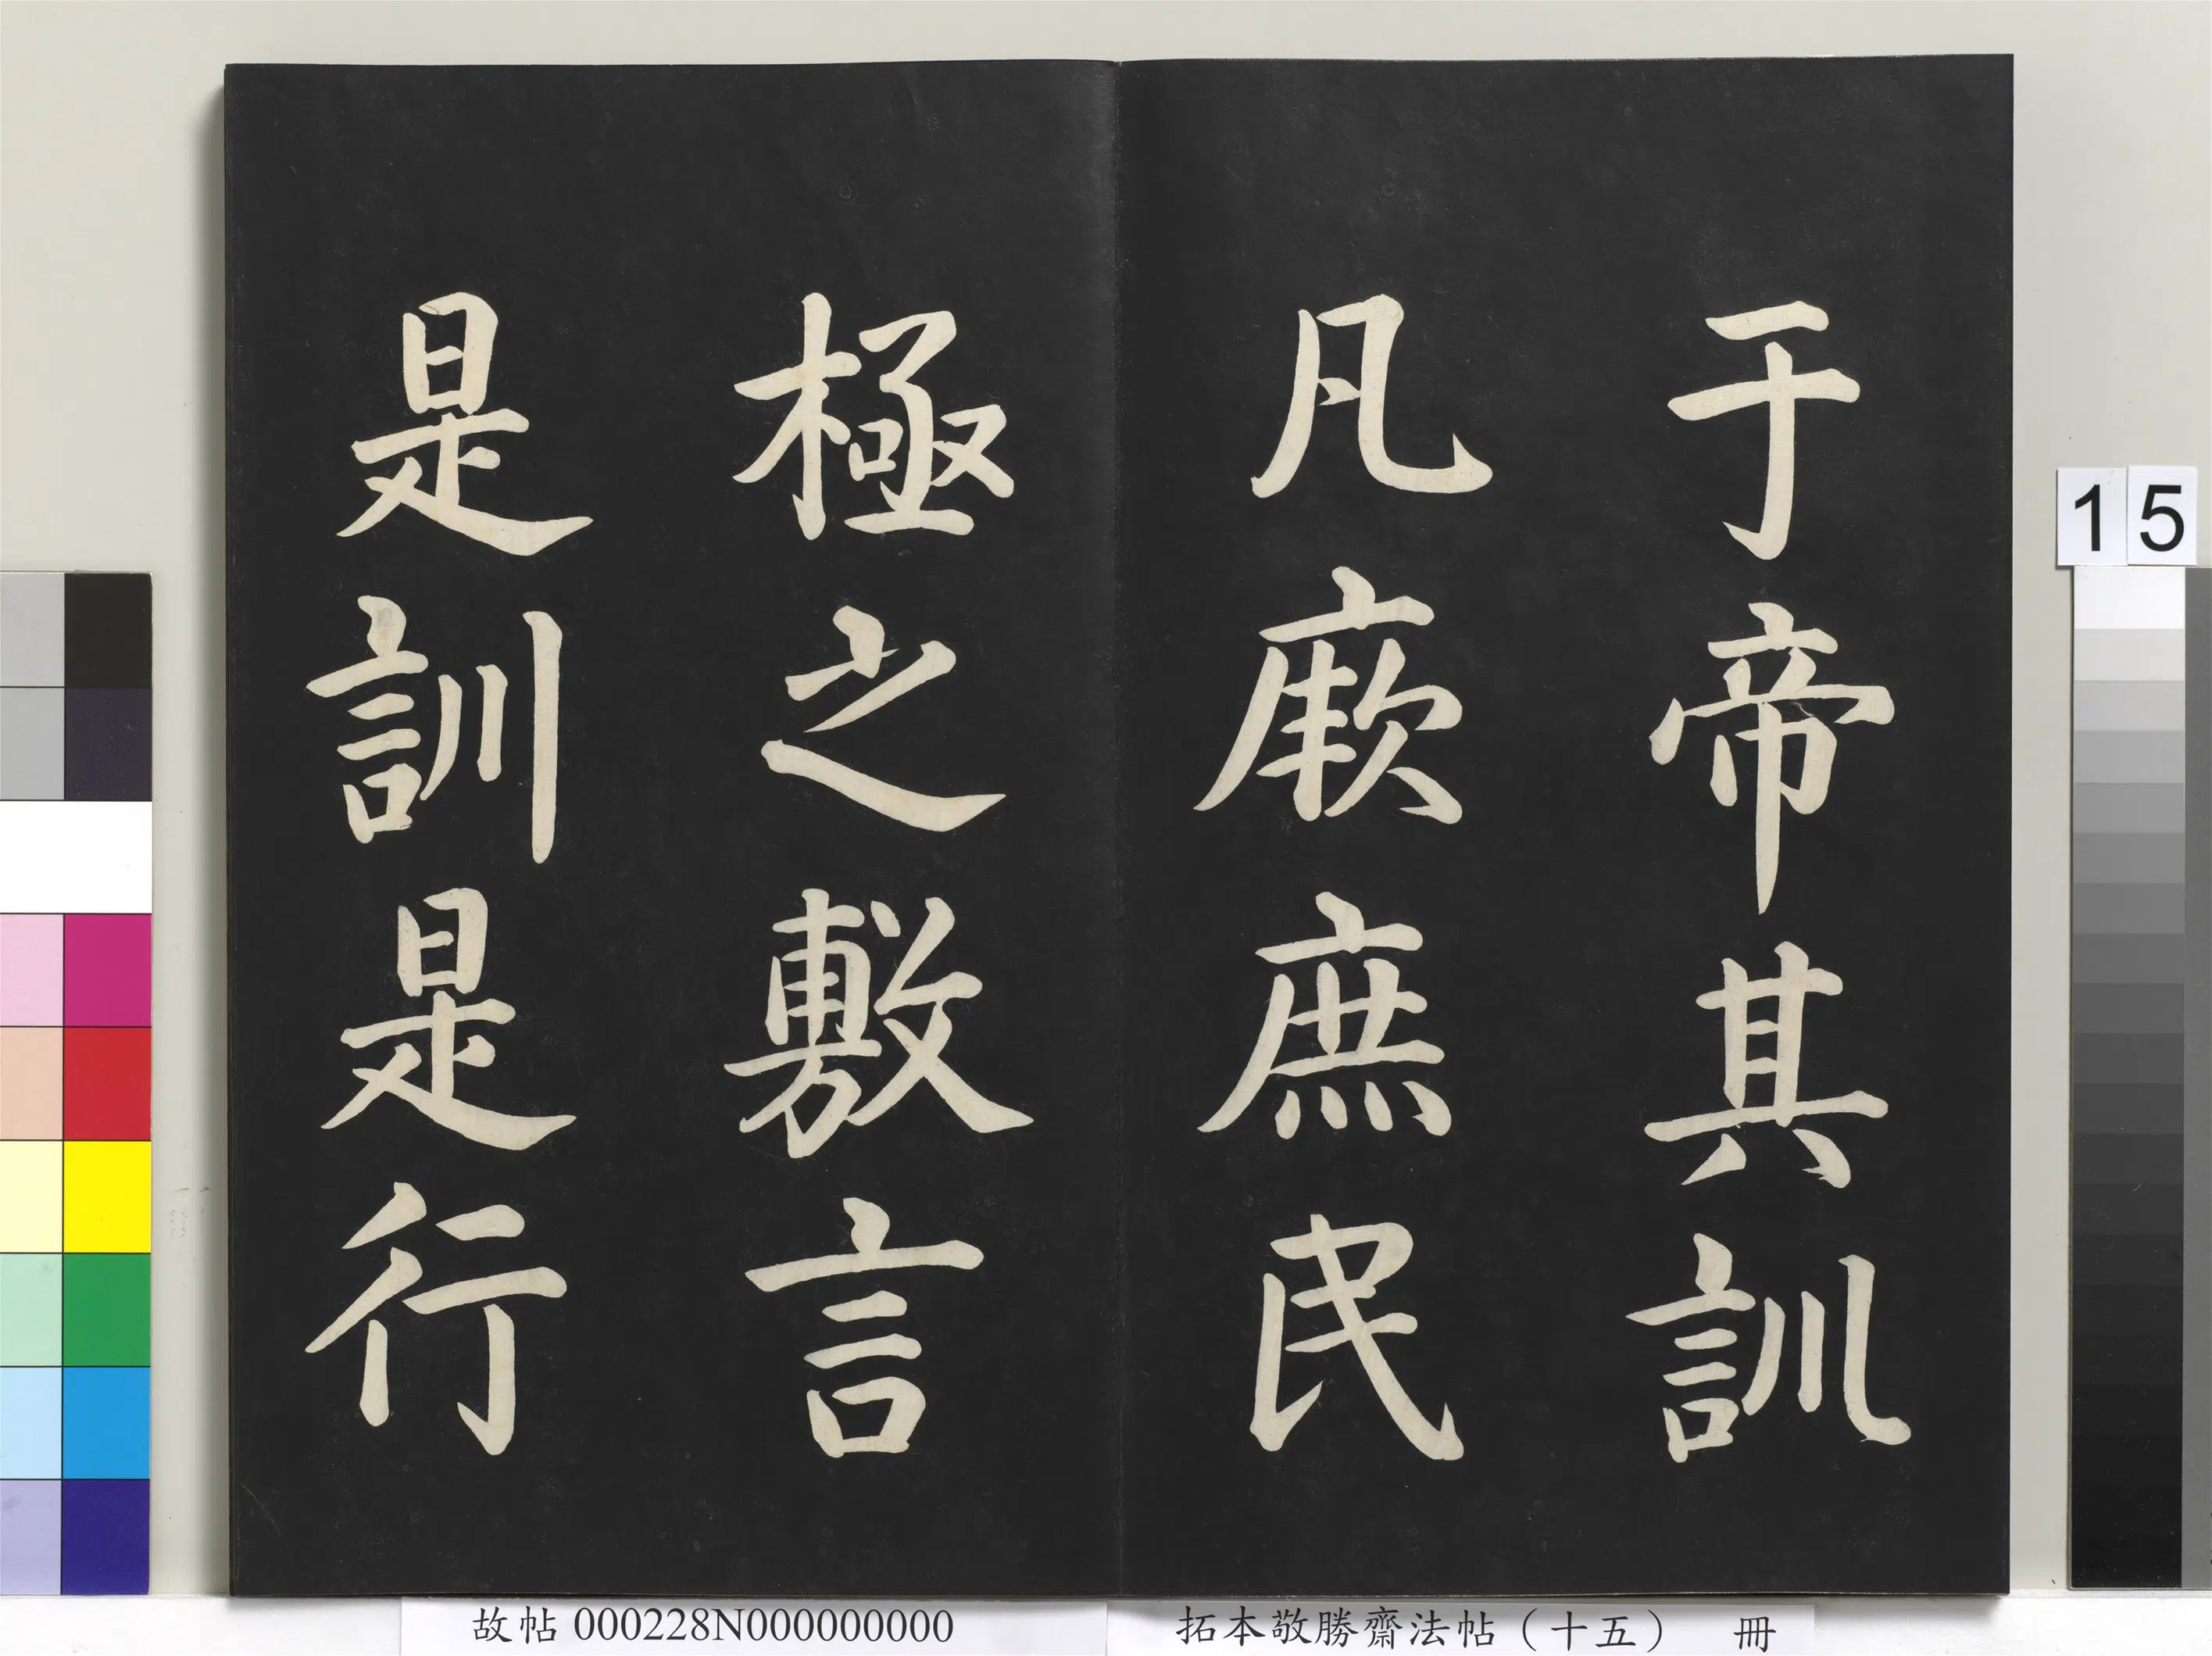 于帝其訓
凡厥庶民
極之敷言
是訓是行
15
故帖 000228N000000000
拓本敬勝齋法帖(十五) 冊